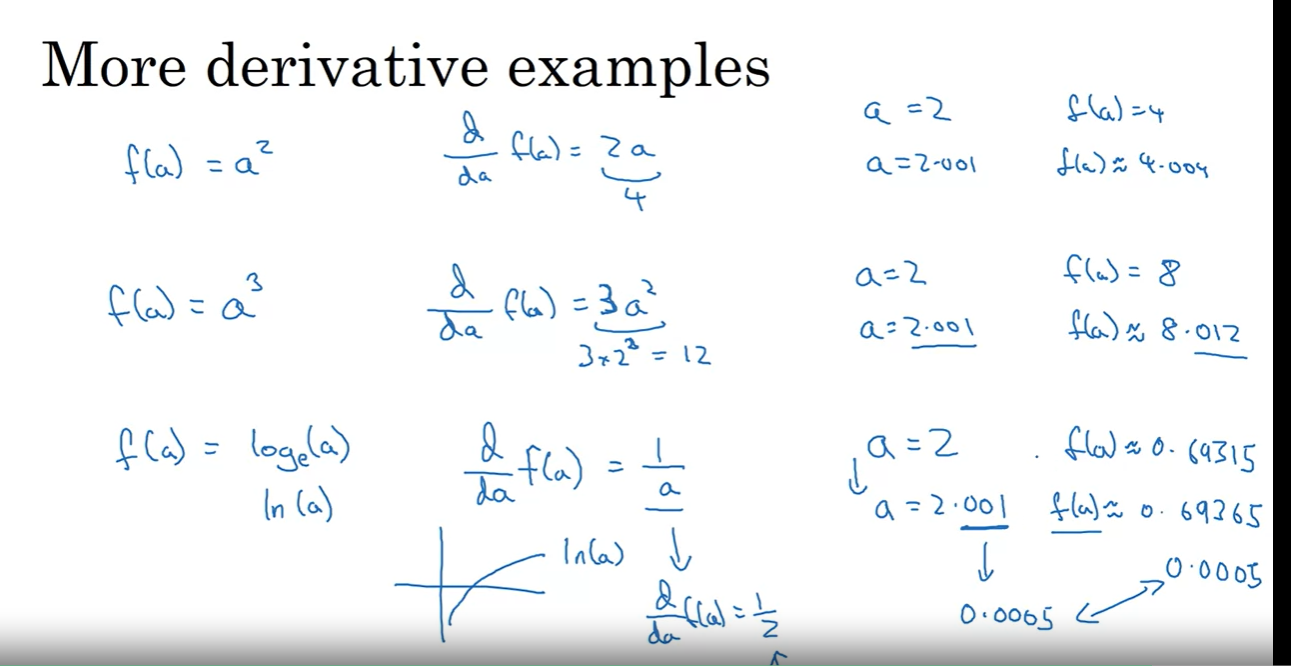 More derivative examples
f(a) = a²
d/da f(a) = 2a
4
a = 2
f(a) = 4
a = 2.001
f(a) ≈ 4.004
f(a) = a³
d/da f(a) = 3a²
3×2³ = 12
a = 2
f(a) = 8
a = 2.001
f(a) ≈ 8.012
f(a) = logₑ(a)
ln(a)
d/da f(a) = 1/a
a = 2
f(a) ≈ 0.69315
a = 2.001
f(a) ≈ 0.69365
ln(a)
d/da f(a) = 1/2
0.0005
0.0005